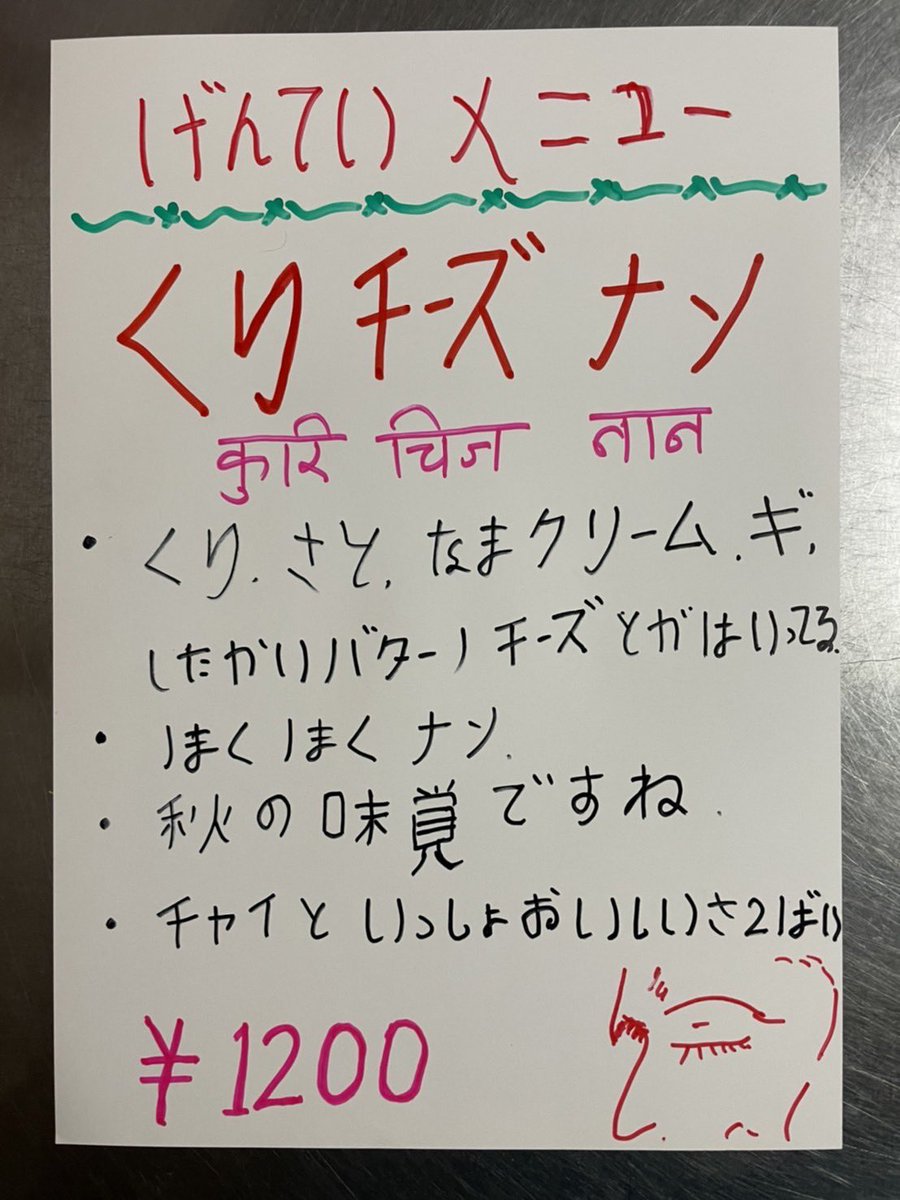 げんてい メニュー
くり チーズ ナン
कुरि चिज नान
・くり.さと.なまクリーム.ギ.
したかいバターノチーズとかはいってる.
・ほくほくナン.
・秋の味覚ですね.
・チャイといっしょおいしいさ2ばい
￥1200